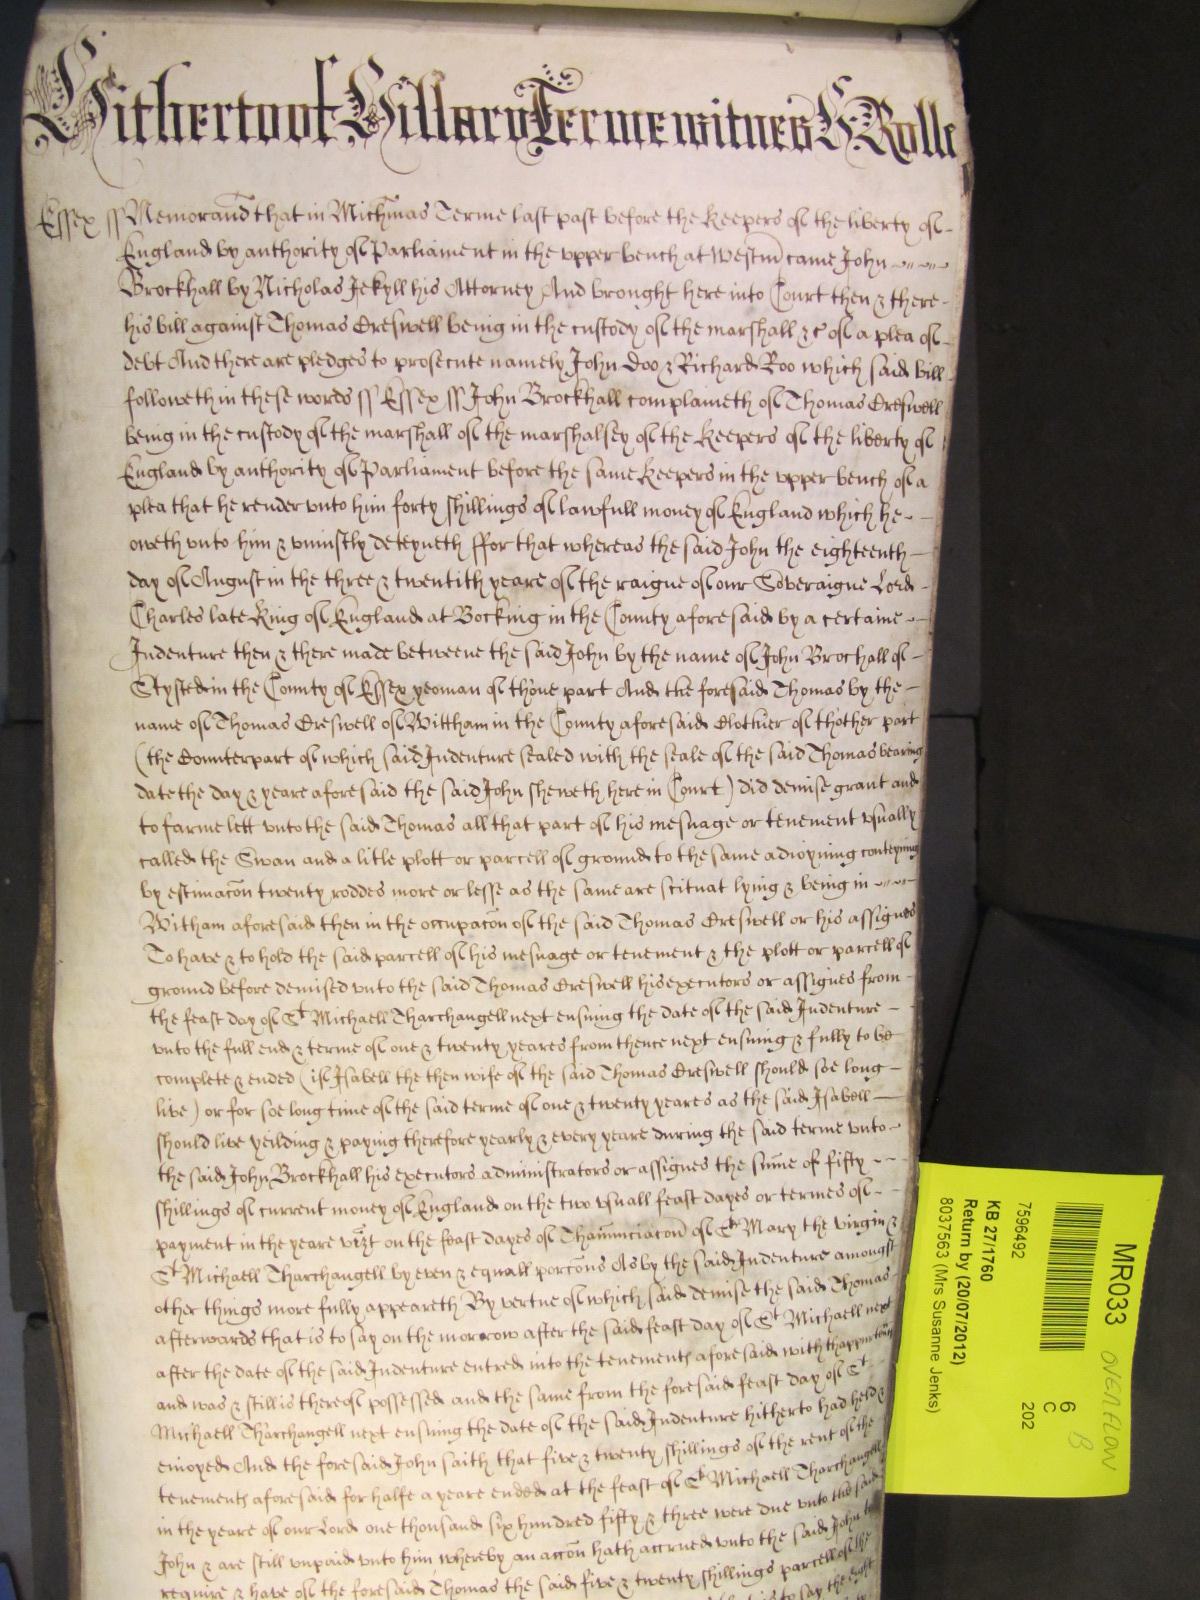 Hitherto of Hillary Terme witnes H: Rolle
Essex ss Memorand that in Michmas Terme last past before the Keepers of the liberty of
England by authority of Parliament in the upper bench at Westm came John
Brockhall by Nicholas Jekyll his Attorney And brought here into Court then & there
his bill against Thomas Creswell being in the custody of the marshall &c of a plea of
debt And there are pledges to prosecute namely John Doo & Richard Roo which said bill
followeth in these words ss Essex ss John Brockhall complaineth of Thomas Creswell
being in the custody of the marshall of the marshalsey of the Keepers of the liberty of
England by authority of Parliament before the same Keepers in the upper bench of a
plea that he render unto him forty shillings of lawfull money of England which he
oweth unto him & uniustly deteyneth ffor that whereas the said John the eighteenth
day of August in the three & twentith yeare of the raigne of our Soveraigne Lord
Charles late King of England at Bocking in the County aforesaid by a certaine
Indenture then & there made betweene the said John by the name of John Brochall of
Stysted in the County of Essex yeoman of thone part And the foresaid Thomas by the
name of Thomas Creswell of Wittham in the County aforesaid Clothier of thother part
(the Counterpart of which said Indenture sealed with the seale of the said Thomas bearing
date the day & yeare aforesaid the said John sheweth here in Court) did demise grant and
to farme lett unto the said Thomas all that part of his mesuage or tenement usually
called the Swan and a litle plott or parcell of ground to the same adioyning conteyning
by estimacon twenty roddes more or lesse as the same are scituat lying & being in
Witham aforesaid then in the occupacon of the said Thomas Creswell or his assignes
To have & to hold the said parcell of his mesuage or tenement & the plott or parcell of
ground before demised unto the said Thomas Creswell his executors or assignes from
the feast day of St Michaell Tharchangell next ensuing the date of the said Indenture
unto the full end & terme of one & twenty yeares from thence next ensuing & fully to be
complete & ended (if Isabell the then wife of the said Thomas Creswell should soe long
live) or for soe long time of the said terme of one & twenty yeares as the said Isabell
should live yeilding & paying therefore yearly & every yeare during the said terme unto
the said John Brockhall his executors administrators or assignes the sume of fifty
shillings of current money of England on the two usuall feast dayes or termes of
payment in the yeare vizt on the feast dayes of Thannunciacon of St Mary the virgin &
St Michaell Tharchangell by even & equall porcons As by the said Indenture amongst
other things more fully appeareth By vertue of which said demise the said Thomas
afterwards that is to say on the morrow after the said feast day of St Michaell next
after the date of the said Indenture entred into the tenements aforesaid with thappurtenn
and was & still is thereof possessed and the same from the foresaid feast day of St
Michaell Tharchangell next ensuing the date of the said Indenture hitherto had held &
enioyed And the foresaid John saith that five & twenty shillings of the rent of the
tenements aforesaid for halfe a yeare ended at the feast of St Michaell Tharchangell
in the yeare of our Lord one thousand six hundred fifty & three were due unto the said
John & are still unpaid unto him whereby an accon hath accrued unto the said John to
require & have of the foresaid Thomas the said five & twenty shillings parcell of the
is to say the eight
MR033 OVERFLOW
6 B
C
202
7596492
KB 27/1760
Return by (20/07/2012)
8037563 (Mrs Susanne Jenks)